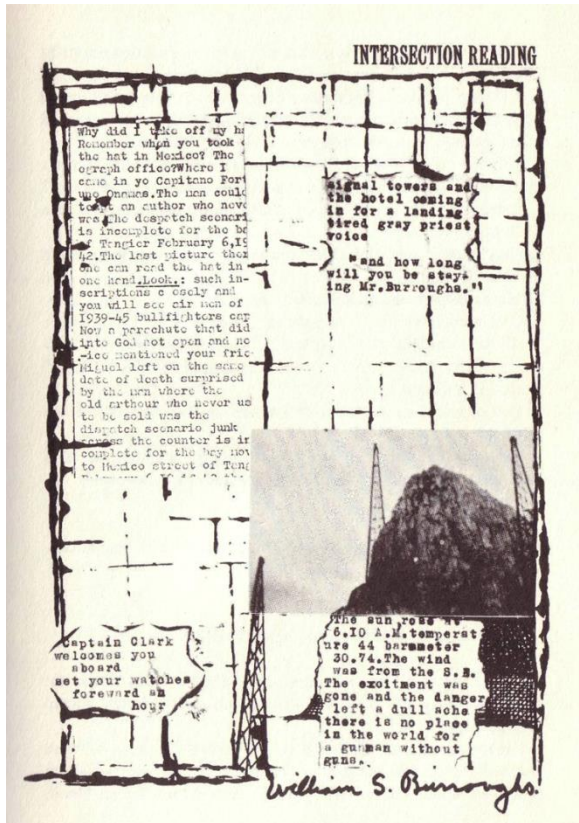 INTERSECTION READING
Why did I take off my ha
Remomber when you took o
the hat in Mexico? The
ograph office?Where I
came in yo Capitano Fort
uno Onamas.The man could
an author who neve
was.The despatch scenari
is incomplete for the ba
of Tangier February 6,19
42.The last picture ther
one can read the hat in
one hand.Look.: such in-
scriptions c osely and
you will see air men of
1939-45 bullfighters cap
Now a parachute that did
into God not open and no
-ico mentioned your frie
Miguel left on the same
date of death surprised
by the man where the
old arthour who never us
to be sold was the
dispatch scenario junk
across the counter is in
complete for the bay nov
to Mexico street of Tang
signal towers and
the hotel coming
in for a landing
tired gray priest
voice
"and how long
will you be stay-
ing Mr.Burroughs."
Captain Clark
welcomes you
aboard
set your watches
foreward an
hour
The sun rose at
6.IO A.M.temperat
ure 44 barometer
30.74.The wind
was from the S.E.
The excitment was
gone and the danger
left a dull ache
there is no place
in the world for
a gunman without
guns.
William S. Burroughs.